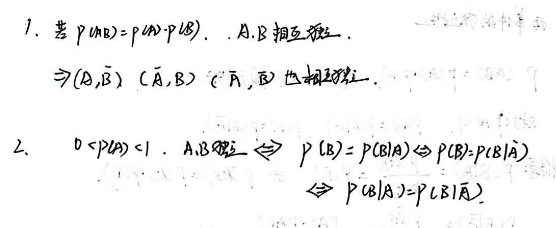 1. 若 P(AB)=P(A)·P(B). A.B 相互独立.
⇒(A,B̄) (Ā,B) (Ā,B̄) 也相互独立.
2. 0<P(A)<1. A.B独立 ⇔ P(B)=P(B|A)⇔P(B)=P(B|Ā)
⇔ P(B|A)=P(B|Ā)